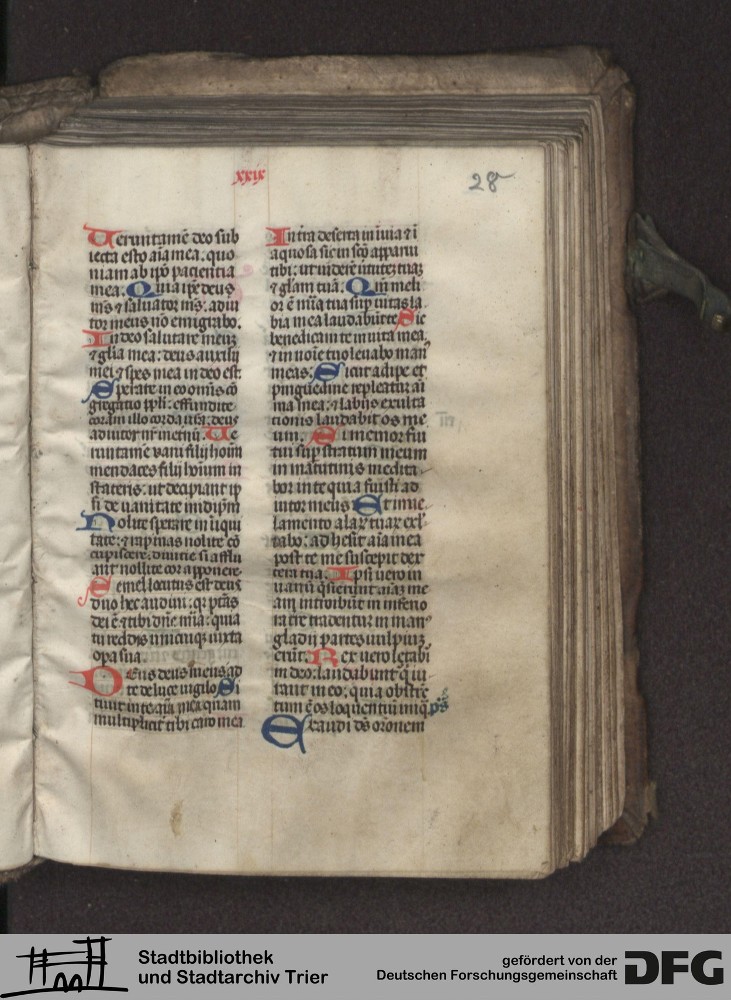 xxix
28
Ueruntamē deo sub
iecta esto aīa mea: quo
niam ab ipō paciencia
mea. Quia ipē deus
ms̄ & saluator ms̄: adiu
tor meus nō emigrabo.
In deo salutare meuȝ
& glīa mea: deus auxilij
mei & spes mea in deo est.
Sperate in eo omīs cō
gregatio ppli: effundite
coram illo corda vr̄a: deus
adiutor nr̄ ineternū. Ue
runtamē vani filij homī
mendaces filij hoīum in
stateris: ut decipiant ip
si de uanitate in idipm̄
Nolite sperare in iniqui
tate: & rapinas nolite cō
cupiscere: diuitie si afflu
ant nollite cor apponere.
Semel locutus est deus
duo hec audiui: qr ptās
dei ē & tibi dn̄e mīa: quia
tu reddis unicuiq iuxta
opa sua.
Deus deus meus ad
te de luce uigilo Si
tiuit in te aīa mea quam
multipliciṫ tibi caro mea.
In tr̄a deserta in īuia & ī
aquosa sic in scō apparui
tibi: ut uiderē uirtuteȝ tuaȝ
& glām tuā: Qm̄ meli
or ē mīa tua sup uitas la
bia mea laudabūt te Sic
benedicam te in uita mea
& in noīe tuo leuabo man
meas: Sicut adipe et
pinguedine repleatur aī
ma mea: & labijs exulta
tionis laudabit os me
um: Si memor fui
tui sup stratum meum
in matutinis medita
bor in te quia fuisti ad
iutor meus Et in ue
lamento alaꝝ tuaꝝ exl
tabo: adhesit aīa mea
post te me suscepit dex
tera tua: Ipsi uero in
uanū q̄sierunt aīaȝ me
am introibūt in inferio
ra tr̄e tradentur in man
gladij partes uulpiuȝ
erūt. Rex uero letabi
in deo: laudabuntur q̄ iu
rant in eo: quia obstrc̄
tum ē os loquentiū iniq̄. ps̄
Exaudi ds̄ or̄onem
Stadtbibliothek
und Stadtarchiv Trier
gefördert von der
Deutschen Forschungsgemeinschaft
DFG